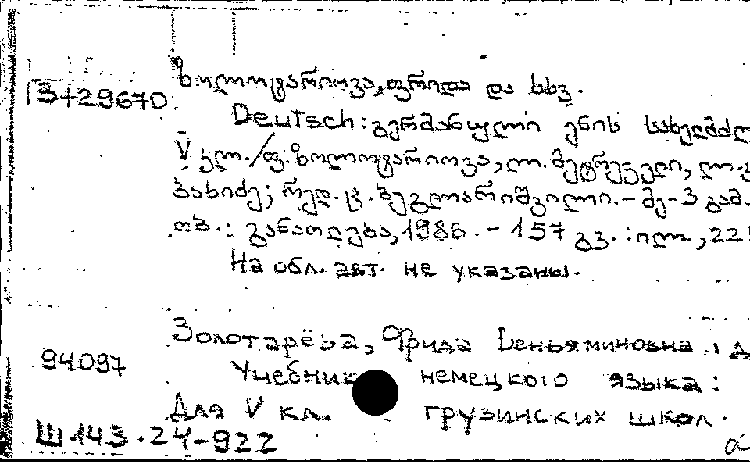 ზოლოტარიოვა, ფრიდა და სხვ.
Г3+29670
Deutsch: გერმანული ენის სახელმძღ
V კლ. / ფ. ზოლოტარიოვა, ლ. მეტრეველი, ლ.
ბახიძე; რედ. ც. ბეგლარიშვილი. - მე-3 გამ.
თბ.: განათლება, 1986. - 157 გვ.: ილ., 22
На обл. авт. не указаны.
Золотарёва, Фрида Веньяминовна и д
94097 Учебник немецкого языка:
Для V кл. грузинских школ.
Ш143.24-922